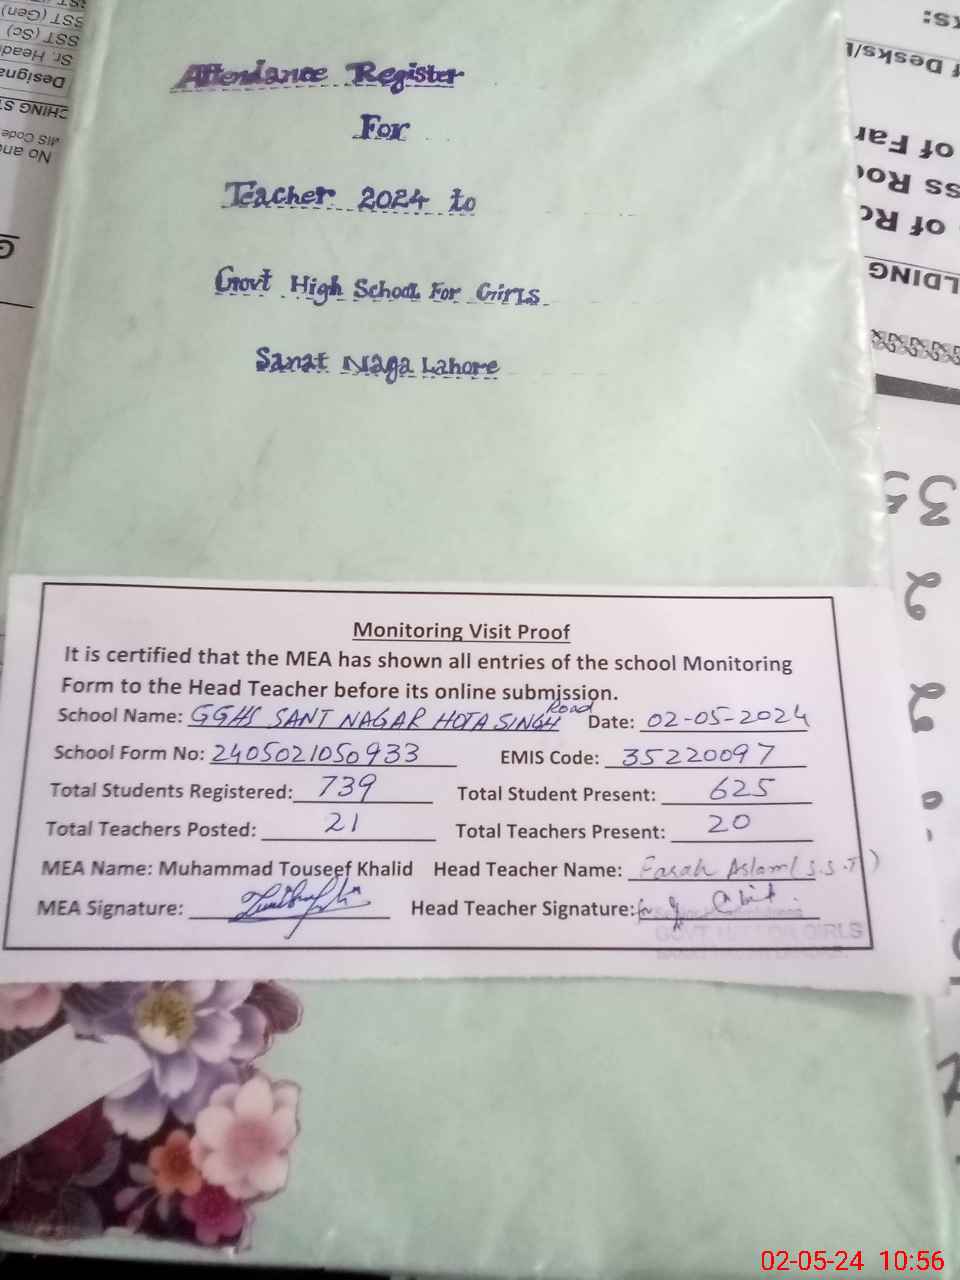 Attendance Register
For
Teacher 2024 to
Govt High School For Girls
Sanat Naga Lahore
Monitoring Visit Proof
It is certified that the MEA has shown all entries of the school Monitoring
Form to the Head Teacher before its online submission.
School Name: GGHS SANT NAGAR HOTA SINGH Road Date: 02-05-2024
School Form No: 2405021050933 EMIS Code: 35220097
Total Students Registered: 739 Total Student Present: 625
Total Teachers Posted: 21 Total Teachers Present: 20
MEA Name: Muhammad Touseef Khalid Head Teacher Name: Farah Aslam (S.S.T)
MEA Signature: Head Teacher Signature:
GIRLS
SST (Gen)
SST (Sc)
of Desks/
of
of
LDING
35
2
2
0
02-05-24 10:56